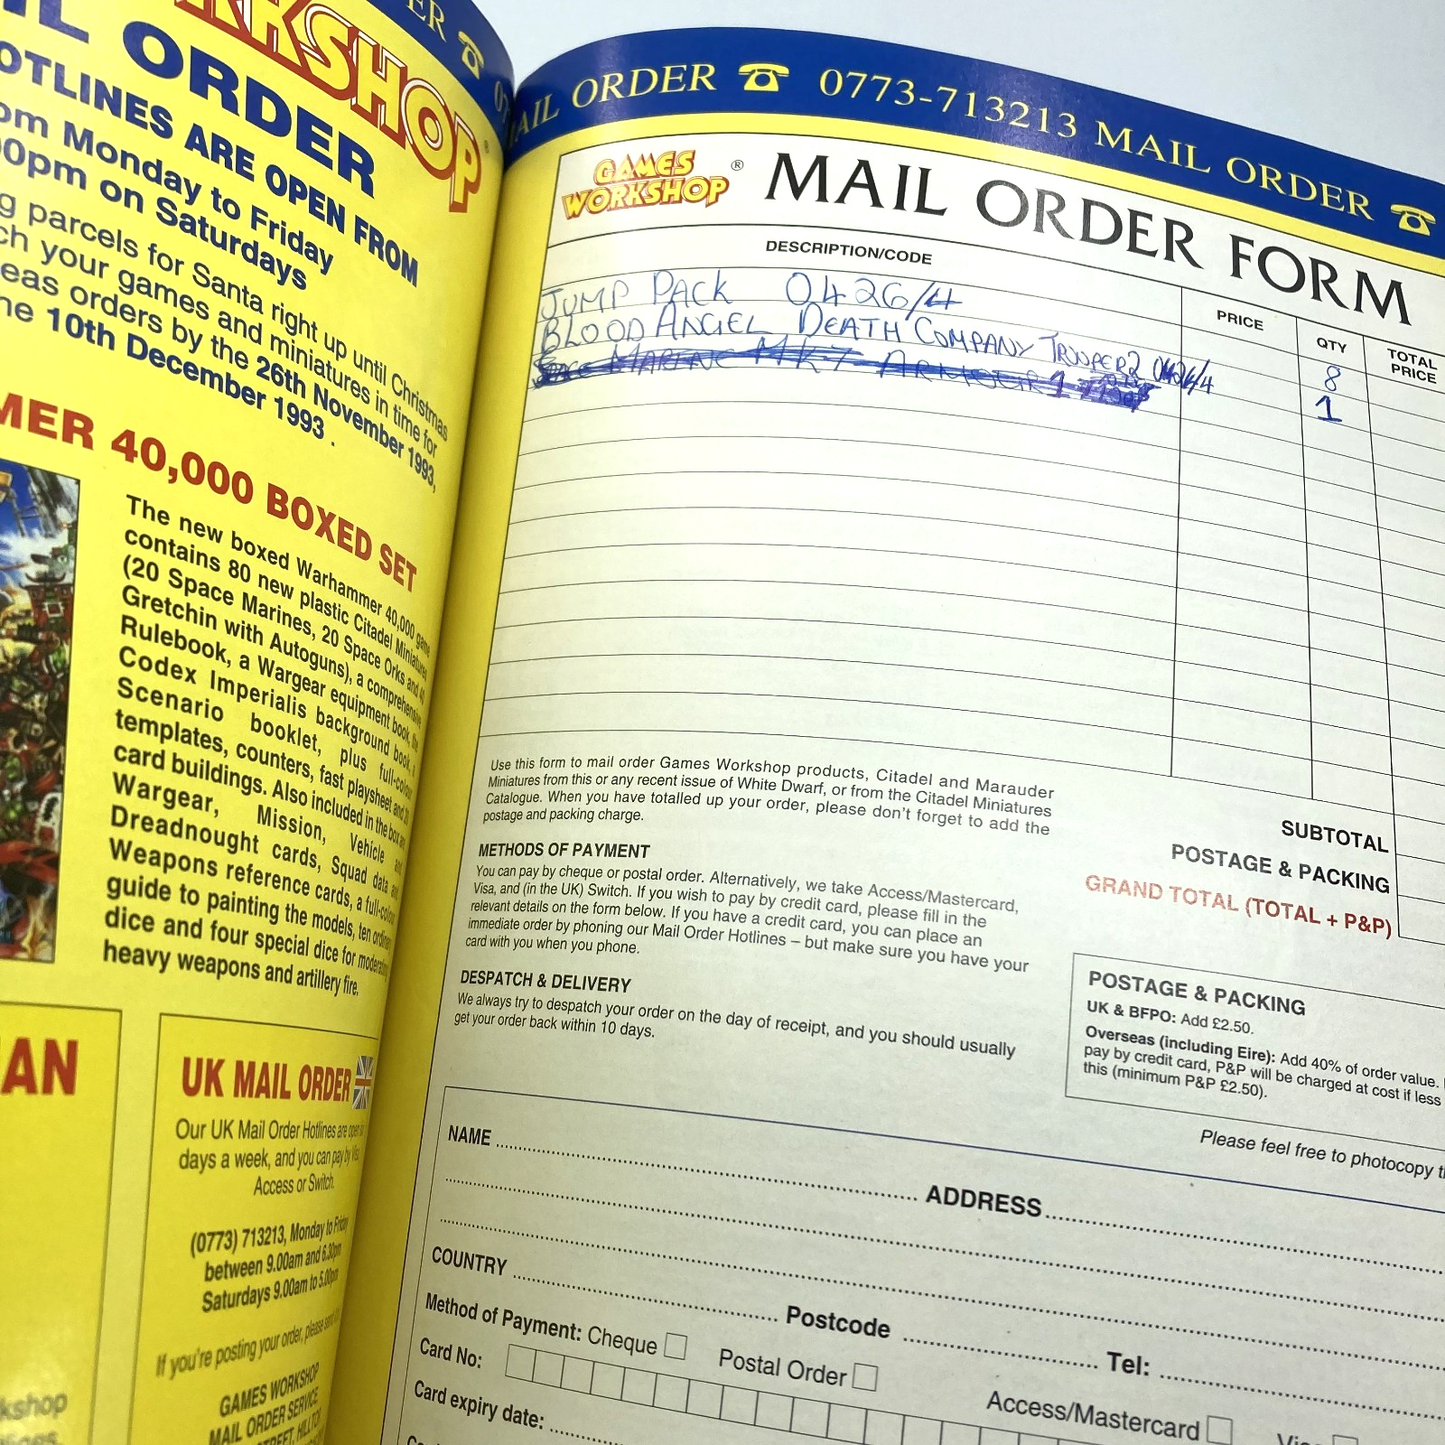 ER ☎ 07
RKSHOP®
IL ORDER
OTLINES ARE OPEN FROM
om Monday to Friday
00pm on Saturdays
g parcels for Santa right up until Christmas
ch your games and miniatures in time for
eas orders by the 26th November 1993,
he 10th December 1993 .
MER 40,000 BOXED SET
The new boxed Warhammer 40,000 game
contains 80 new plastic Citadel Miniatures
(20 Space Marines, 20 Space Orks and 40
Gretchin with Autoguns), a comprehensive
Rulebook, a Wargear equipment book, the
Codex Imperialis background book, a
Scenario booklet, plus full-colour
templates, counters, fast playsheet and 20
card buildings. Also included in the box are
Wargear, Mission, Vehicle and
Dreadnought cards, Squad data and
Weapons reference cards, a full-colour
guide to painting the models, ten ordinary
dice and four special dice for moderating
heavy weapons and artillery fire.
AN
kshop
UK MAIL ORDER
Our UK Mail Order Hotlines are open
days a week, and you can pay by Visa,
Access or Switch.
(0773) 713213, Monday to Friday
between 9.00am and 6.30pm
Saturdays 9.00am to 5.00pm
If you're posting your order, please
GAMES WORKSHOP
MAIL ORDER SERVICE
STREET, HILLTOP
MAIL ORDER ☎ 0773-713213 MAIL ORDER ☎
GAMES WORKSHOP ® MAIL ORDER FORM
DESCRIPTION/CODE PRICE QTY TOTAL PRICE
JUMP PACK 0426/4 8
BLOOD ANGEL DEATH COMPANY TROOPER2 0426/4 1
SPACE MARINE MK7 ARMOUR 1
Use this form to mail order Games Workshop products, Citadel and Marauder
Miniatures from this or any recent issue of White Dwarf, or from the Citadel Miniatures
Catalogue. When you have totalled up your order, please don't forget to add the
postage and packing charge.
SUBTOTAL
POSTAGE & PACKING
GRAND TOTAL (TOTAL + P&P)
METHODS OF PAYMENT
You can pay by cheque or postal order. Alternatively, we take Access/Mastercard,
Visa, and (in the UK) Switch. If you wish to pay by credit card, please fill in the
relevant details on the form below. If you have a credit card, you can place an
immediate order by phoning our Mail Order Hotlines – but make sure you have your
card with you when you phone.
DESPATCH & DELIVERY
We always try to despatch your order on the day of receipt, and you should usually
get your order back within 10 days.
POSTAGE & PACKING
UK & BFPO: Add £2.50.
Overseas (including Eire): Add 40% of order value.
pay by credit card, P&P will be charged at cost if less
this (minimum P&P £2.50).
Please feel free to photocopy
NAME ADDRESS
COUNTRY Postcode Tel:
Method of Payment: Cheque Postal Order Access/Mastercard Visa
Card No:
Card expiry date: